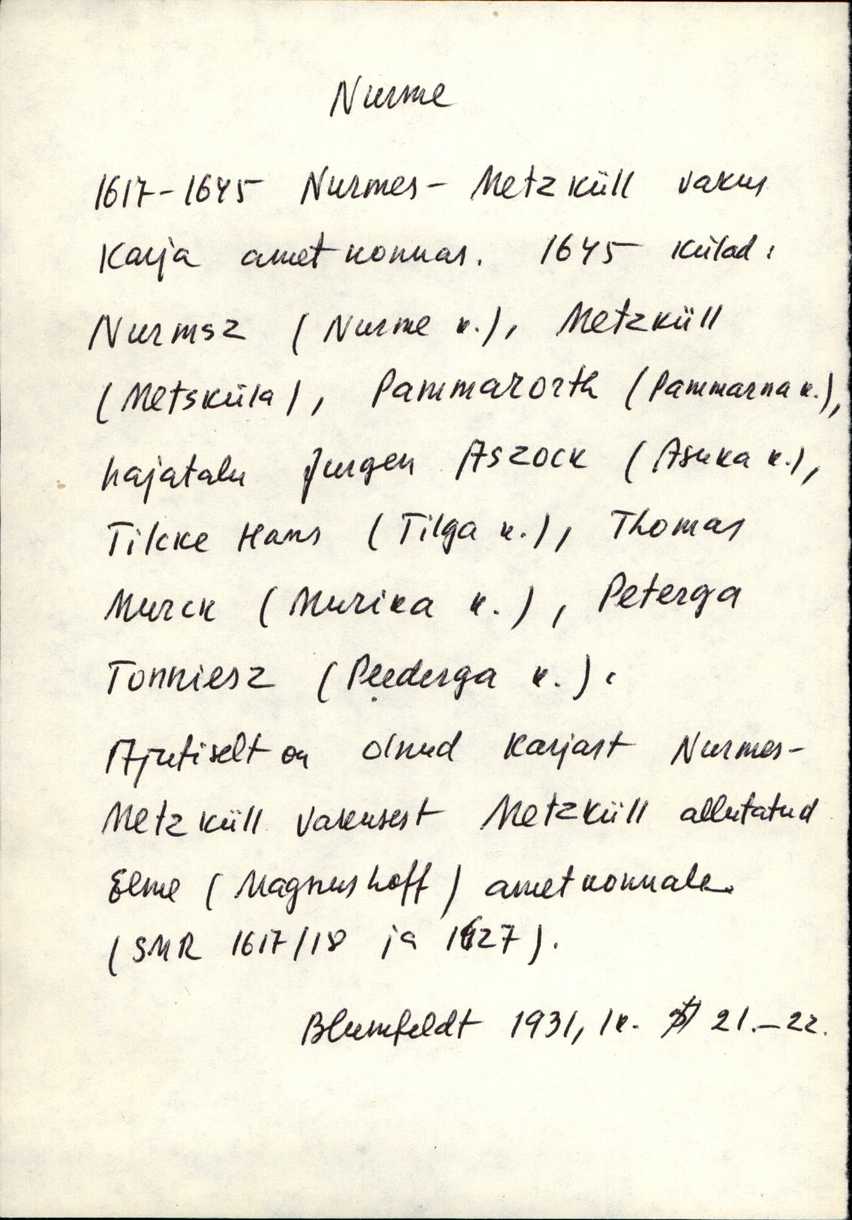 Nurme
1617-1645 Nurmes- Metzküll vakus
Karja ametkonnas. 1645 külad:
Nurmsz (Nurme k.), Metzküll
(Metsküla), Pammarorth (Pammarna k.),
hajatalu Jurgen Aszock (Asuka k.),
Tikke Hans (Tilga k.), Thomas
Murck (Murika k.), Peterga
Tonniesz (Peederga k.).
Ajutiselt on olnud Karjast Nurmes-
Metzküll vakusest Metzküll allutatud
Elme (Magnushoff) ametkonnale.
(SMR 1617/18 ja 1627).
Blumfeldt 1931, lk. 21.-22.